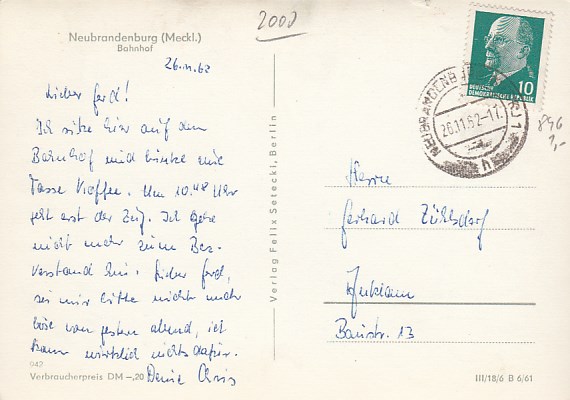 2000
Neubrandenburg (Meckl.)
Bahnhof
26.11.62
Lieber Gerd!
Ich sitze hier auf dem
Bahnhof und trinke eine
Tasse Kaffee. Um 10.48 Uhr
geht erst der Zug. Ich gehe
nicht mehr zum Bez.
vorstand hin. Lieber Gerd,
sei mir bitte nicht mehr
böse von gestern abend, ich
kann wirklich nichts dafür.
Deine Chris
942
Verbraucherpreis DM –,20
Verlag Felix Setecki, Berlin
10
DEUTSCHE
DEMOKRATISCHE REPUBLIK
NEUBRANDENB
26.11.62-11
896
1,-
Herrn
Gerhard Zühlsdorf
Anklam
Baustr. 13
III/18/6 B 6/61